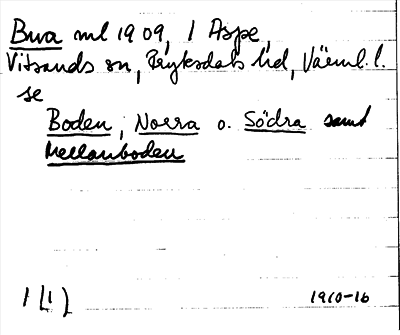 Bwa ml 1909, 1 Aspe,
Vitsands sn, Fryksdals hd, Värml. l.
se
Boden, Norra o. Södra samt
Mellanboden
1 (1)
1910-16